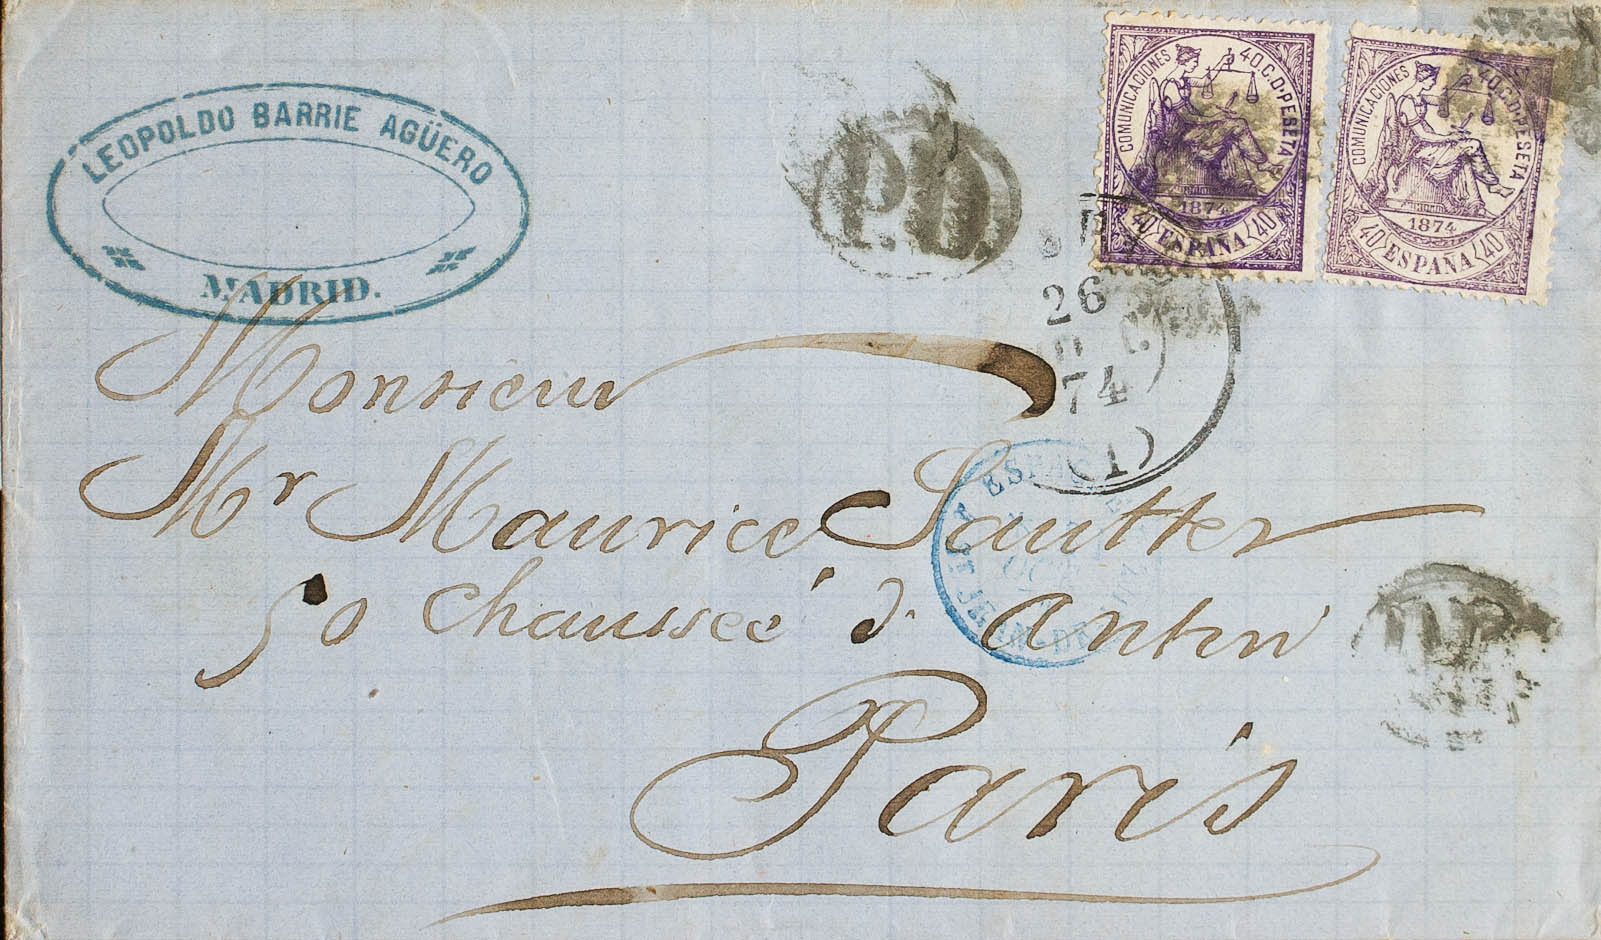 LEOPOLDO BARRIE AGÜERO
MADRID.
P.D.
COMUNICACIONES 40 C. D. PESETA
1874
40 ESPAÑA 40
COMUNICACIONES 40 C. D. PESETA
1874
40 ESPAÑA 40
26
74
(1)
Monsieur
Mr Maurice Sautter
50 Chausseé d. Antin
Paris
ESPAGNE
OCT
ST JEAN-DE-LUZ